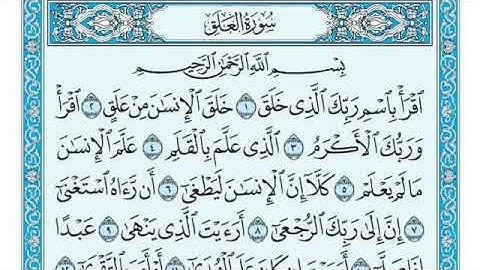 سُورَةُ العَلَقِ
بِسْمِ اللَّهِ الرَّحْمَٰنِ الرَّحِيمِ
اقْرَأْ بِاسْمِ رَبِّكَ الَّذِي خَلَقَ ١ خَلَقَ الْإِنسَانَ مِنْ عَلَقٍ ٢ اقْرَأْ
وَرَبُّكَ الْأَكْرَمُ ٣ الَّذِي عَلَّمَ بِالْقَلَمِ ٤ عَلَّمَ الْإِنسَانَ
مَا لَمْ يَعْلَمْ ٥ كَلَّا إِنَّ الْإِنسَانَ لَيَطْغَىٰ ٦ أَن رَّءَاهُ اسْتَغْنَىٰ
٧ إِنَّ إِلَىٰ رَبِّكَ الرُّجْعَىٰ ٨ أَرَءَيْتَ الَّذِي يَنْهَىٰ ٩ عَبْدًا